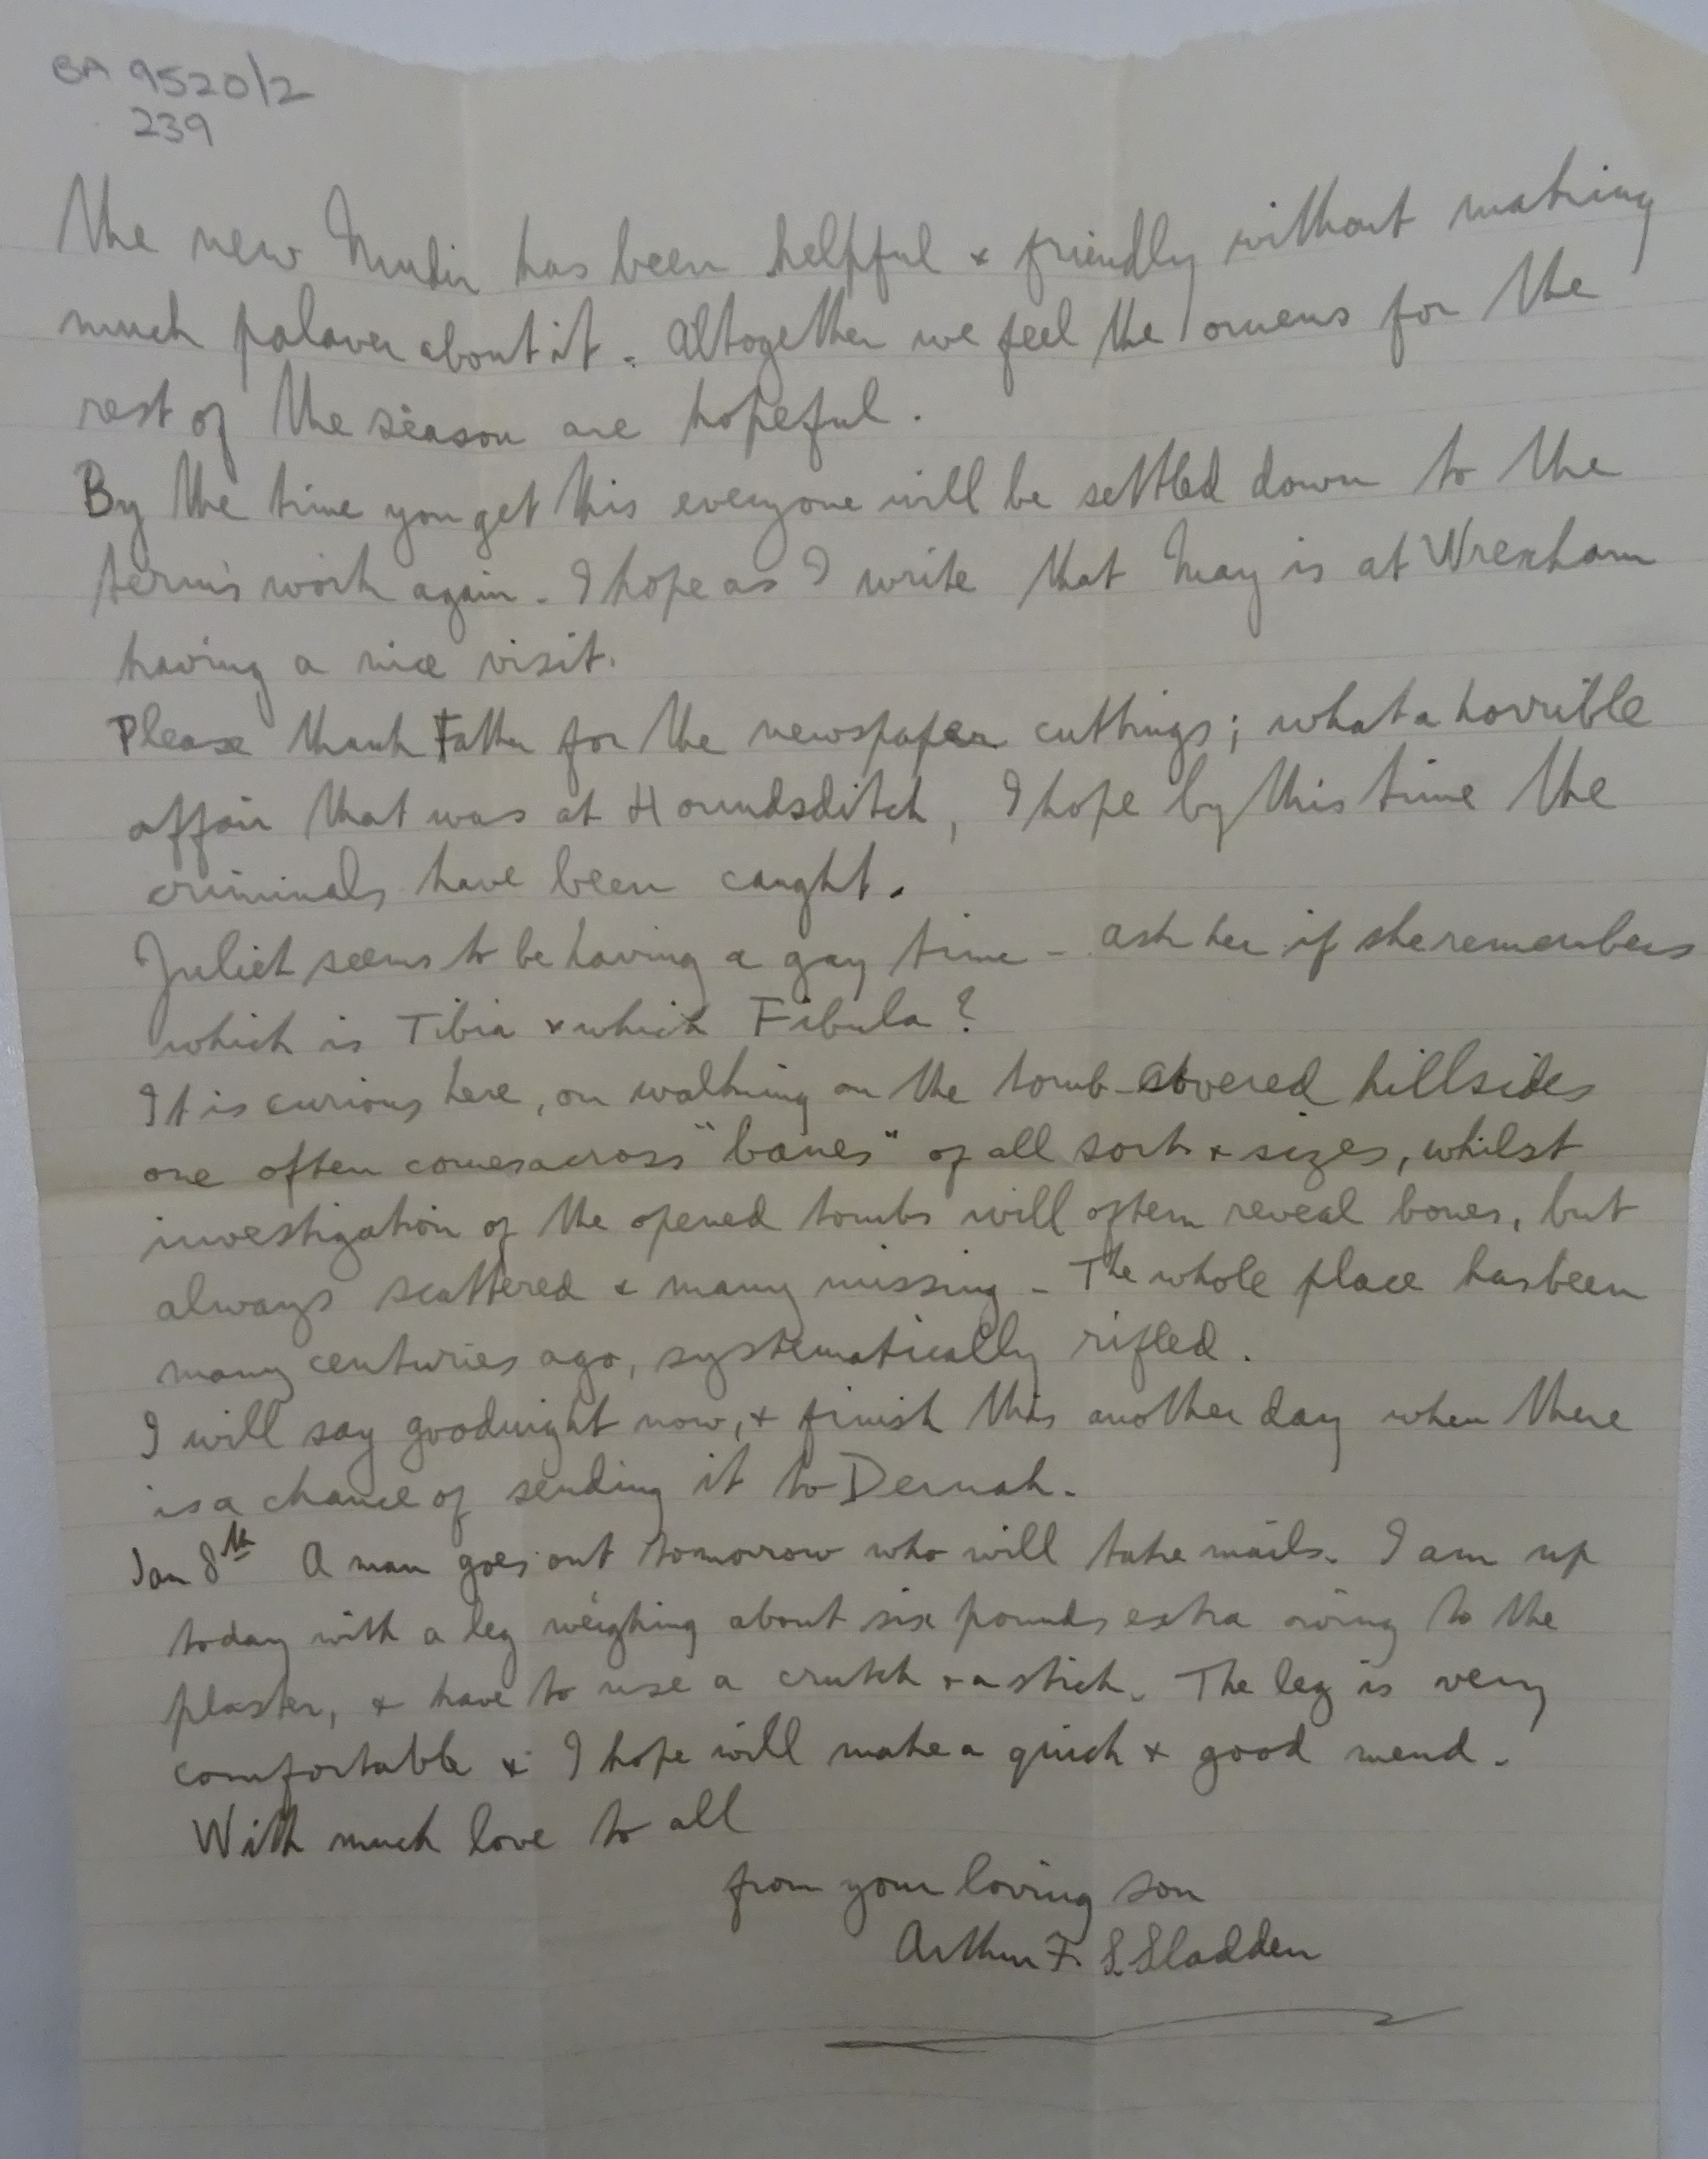 BA 9520/2
239
The new Mudir has been helpful & friendly without making
much palaver about it. Altogether we feel the omens for the
rest of the season are hopeful.
By the time you get this everyone will be settled down to the
term's work again. I hope as I write that May is at Wrexham
having a nice visit.
Please thank Father for the newspaper cuttings; what a horrible
affair that was at Houndsditch, I hope by this time the
criminals have been caught.
Juliet seems to be having a gay time - ask her if she remembers
which is Tibia & which Fibula?
It is curious here, on walking on the tomb-covered hillsides
one often comes across "bones" of all sorts & sizes, whilst
investigation of the opened tombs will often reveal bones, but
always scattered & many missing - The whole place has been
many centuries ago, systematically rifled.
I will say goodnight now, & finish this another day when there
is a chance of sending it to Dernah.
Jan 8th A man goes out tomorrow who will take mails. I am up
today with a leg weighing about six pounds extra owing to the
plaster, & have to use a crutch & a stick. The leg is very
comfortable & I hope will make a quick & good mend.
With much love to all
from your loving son
Arthur F. S. Sladden